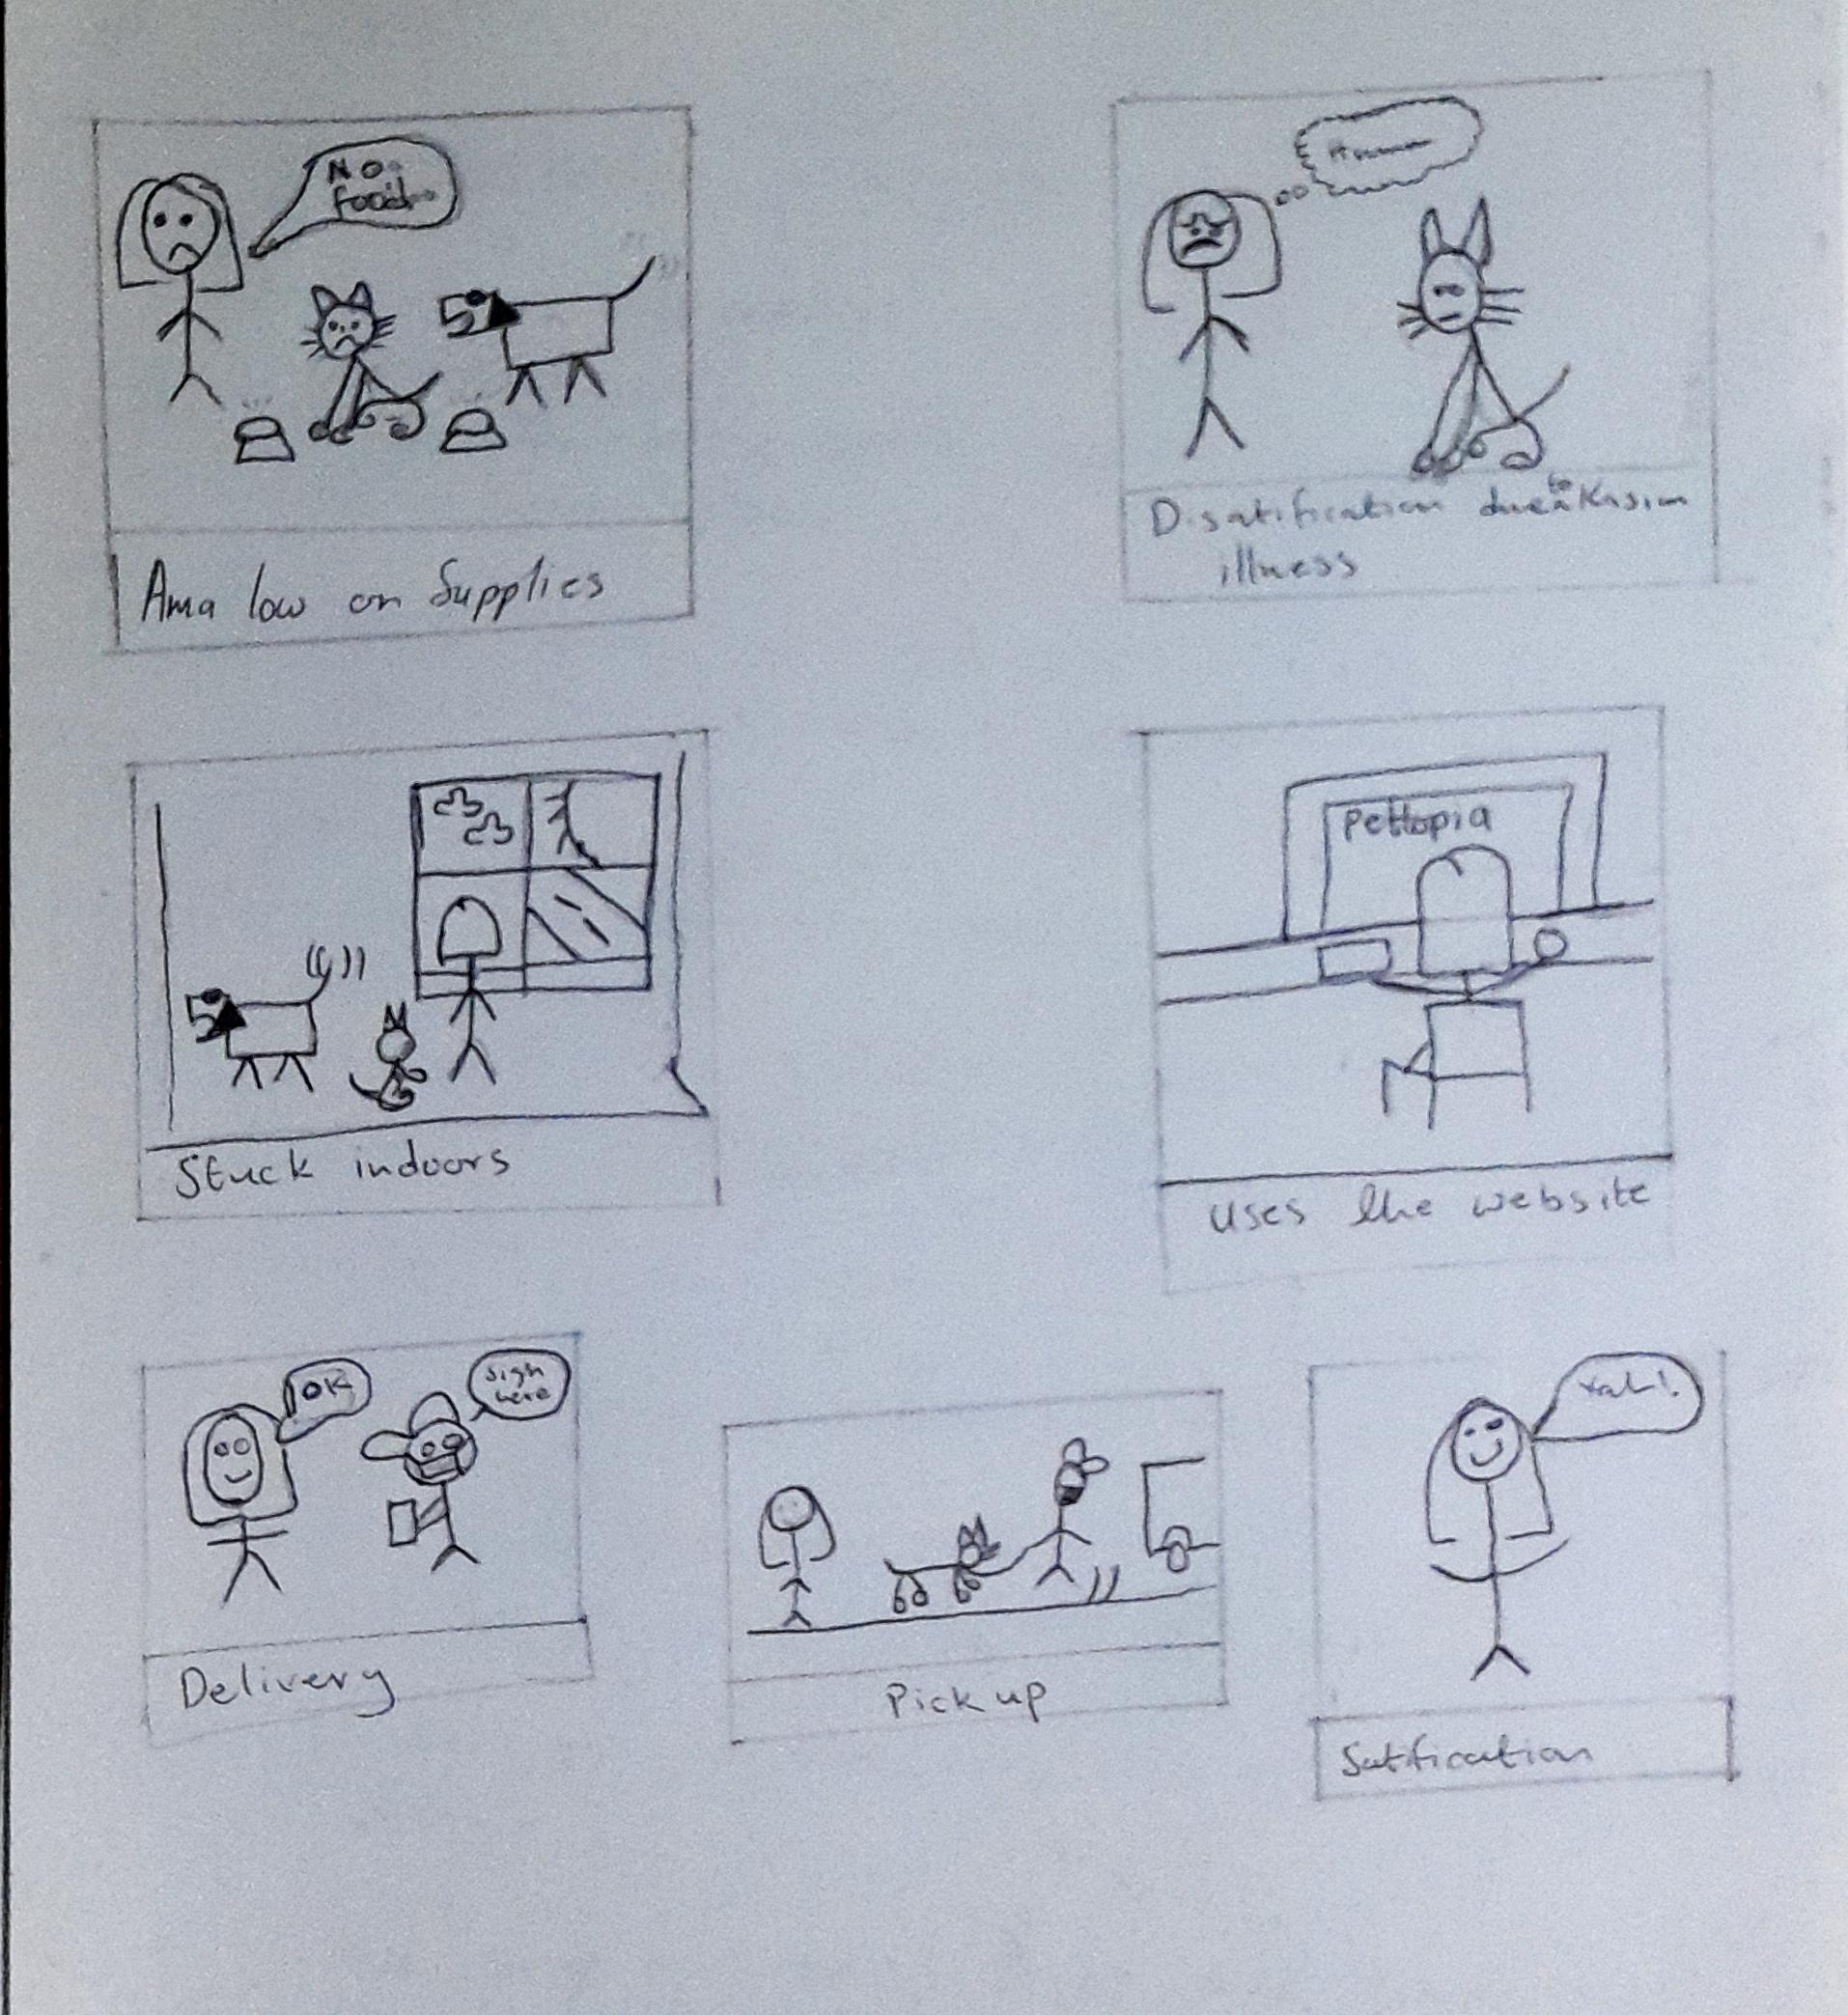 No
food..
Ama low on Supplies
Disatification due to Kasim
illness
Stuck indoors
pettopia
uses the website
OK
sign
here
Delivery
Pick up
Yah!
Satification